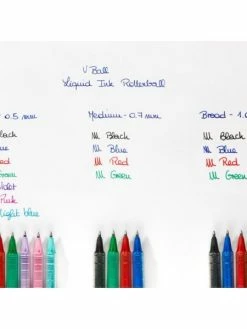 V Ball
Liquid Ink Rollerball
0.5 mm
Black
Blue
Red
Green
Violet
Pink
Light blue
Medium - 0.7 mm
M Black
M Blue
M Red
M Green
Broad - 1.0
M Black
M Blue
M Red
M Green